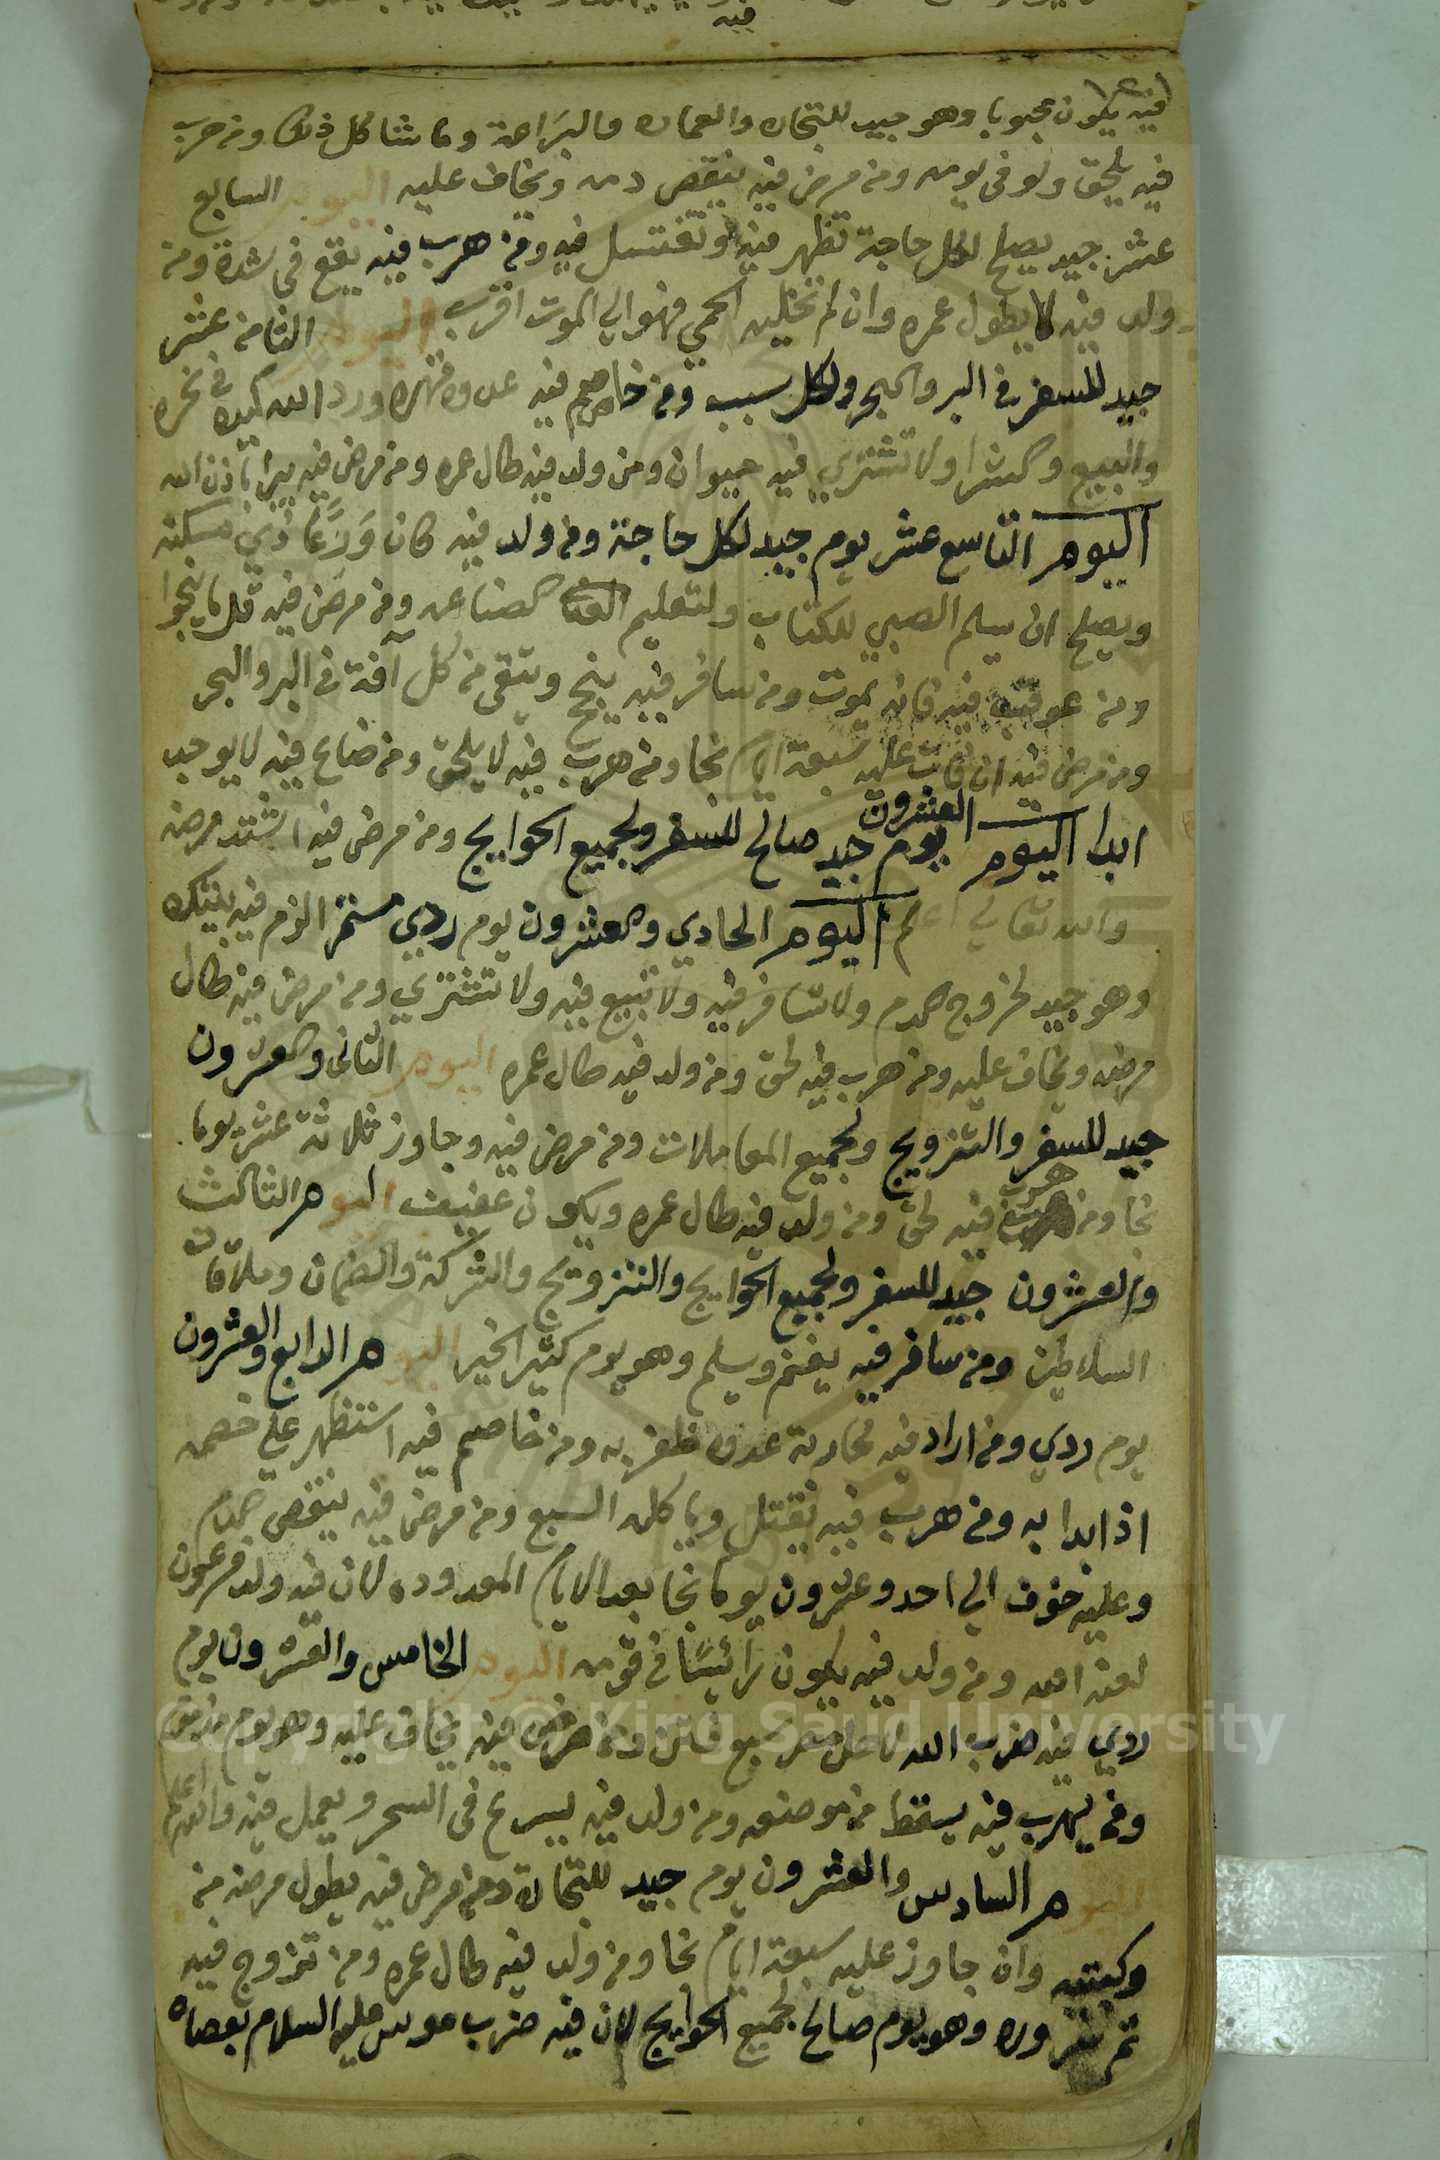 فيه
فيه يكون محبوبا وهو جيد للتجاره والعماره والبراعة وما شاكل ذلك ومن هرب
فيه يلحق ولو في يومه ومن مرض فيه ينقص دمه ويخاف عليه اليوم السابع
عشر جيد يصلح لكل حاجة تظهر فيه وتغتسل فيه ومن هرب فيه يقع في شدة ومن
ولد فيه لا يطول عمره وان لم تخليه الحمي فهو الي الموت اقرب اليوم الثامن عشر
جيد للسفر في البر والبحر ولكل سبب ومن خاصم فيه عدوه قهره ورد الله كيده في نحره
والبيع والشرا ولا تشتري فيه حيوان ومن ولد فيه طال عمره ومن مرض فيه يبرا باذن الله
اليوم التاسع عشر يوم جيد لكل حاجة ومن ولد فيه كان ورعا ذي مسكنه
ويصلح ان يسلم الصبي للكتاب ولتعليم الصناعه ومن مرض فيه قل ما ينجوا
ومن عوقب فيه فانه يموت ومن سافر فيه ينجح ويتقي من كل آفة في البر والبحر
ومن مرض فيه ان فات عليه سبعة ايام نجا ومن هرب فيه لا يلحق ومن ضاع فيه لا يوجد
ابدا اليوم العشرون يوم جيد صالح للسفر ولجميع الحوايج ومن مرض فيه اشتد مرضه
والله تعالي اعلم اليوم الحادي والعشرون يوم ردي مستمر الزم فيه بيتك
وهو جيد لخروج الدم ولا تسافر فيه ولا تبيع فيه ولا تشتري ومن مرض فيه طال
مرضه ويخاف عليه ومن هرب فيه لحق ومن ولد فيه طال عمره اليوم الثاني والعشرون
جيد للسفر والتزويج ولجميع المعاملات ومن مرض فيه وجاوز ثلاثة عشر يوما
نجا ومن هرب فيه لحق ومن ولد فيه طال عمره ويكون عفيف اليوم الثالث
والعشرون جيد للسفر ولجميع الحوايج والتزويج والشركة والضمان وملاقات
السلاطين ومن سافر فيه يغنم ويسلم وهو يوم كثير الخير اليوم الرابع والعشرون
يوم ردي ومن اراد فيه محاربة عدوه ظفر به ومن خاصم فيه استظهر علي خصمه
اذا بدا به ومن هرب فيه يقتل وياكله السبع ومن مرض فيه ينقص الدم
وعليه خوف الي احد وعشرون يوما نجا بعد الايام المعدوده لان فيه ولد فرعون
لعنه الله ومن ولد فيه يكون رائيسا في قومه اليوم الخامس والعشرون يوم
ردي فيه ضرب الله لاهل مصر ومن مرض فيه يخاف عليه وهو يوم
ومن يهرب فيه يسقط من موضعه ومن ولد فيه يسرع في السحر ويعمل فيه والله اعلم
اليوم السادس والعشرون يوم جيد للتجارة ومن مرض فيه يطول مرضه من
وان جاوز عليه سبعة ايام نجا ومن ولد فيه طال عمره ومن تزوج فيه
تم وهو يوم صالح لجميع الحوايج لان فيه ضرب موسي عليه السلام بعصاه
Copyright © King Saud University